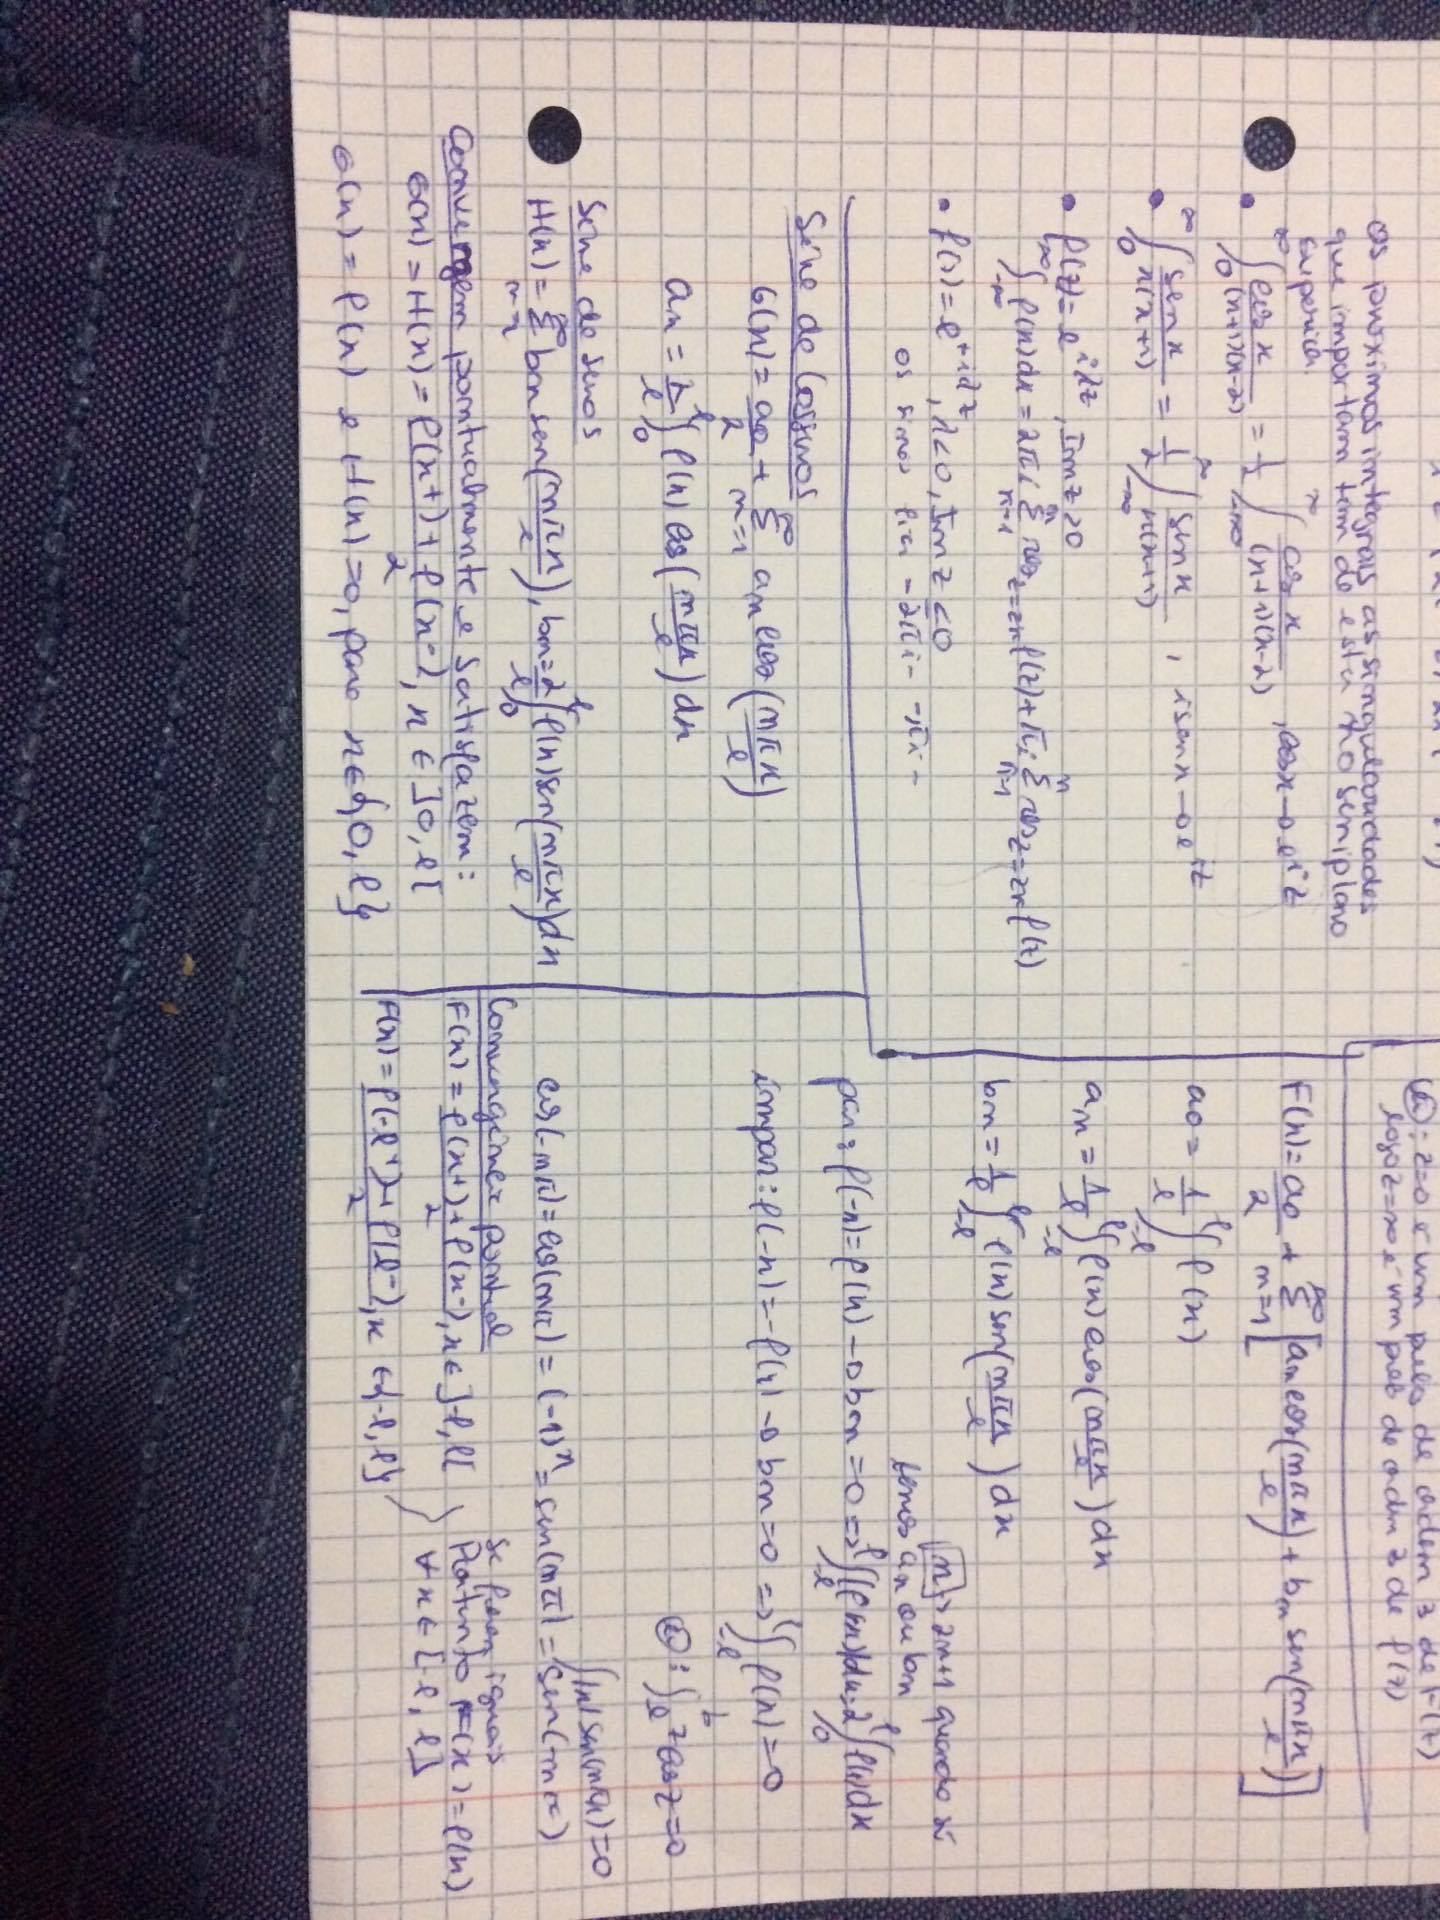 Os próximos integrais as singularidades
que importam tem de está no semiplano
superior
• ∫_0^∞ cos x/((x+1)(x-2)) = 1/2 ∫_{-∞}^∞ cos x/((x+1)(x-2)), cos x → e^{iz}
• ∫_0^∞ sen x/(x(x+1)) = 1/2 ∫_{-∞}^∞ sin x/(x(x+1)), i sen x → e^{iz}
• f(z) = e^{iλz}, Im z > 0
∫_{-∞}^∞ f(x) dx = 2πi Σ_{n=1}^n res_{z=zn} f(z) + πi Σ_{n=1}^n res_{z=zn} f(z)
• f(z) = e^{+iλz}, λ<0, Im z ≤ 0
os sinos fica -2πi - -πi -
Série de Cossenos
G(x) = a0/2 + Σ_{n=1}^∞ an cos(nπx/l)
an = 2/l ∫_0^l f(x) cos(nπx/l) dx
Série de senos
H(x) = Σ_{n=1}^∞ bn sen(nπx/l), bn = 2/l ∫_0^l f(x) sen(nπx/l) dx
Convergem pontualmente e satisfazem:
G(x) = H(x) = (f(x+) + f(x-))/2, x ∈ ]0, l[
G(x) = f(x) e H(x) = 0, para x ∈ {0, l}
: z=0 é um polo de ordem 3 de F(z)
logo z=∞ é um polo de ordem 3 de f(z)
F(x) = a0/2 + Σ_{n=1}^∞ [an cos(nπx/l) + bn sen(nπx/l)]
a0 = 1/l ∫_{-l}^l f(x)
an = 1/l ∫_{-l}^l f(x) cos(nπx/l) dx
bn = 1/l ∫_{-l}^l f(x) sen(nπx/l) dx
n → 2n+1 quando só
temos an ou bn
par: f(-x) = f(x) → bn = 0 => ∫_{-l}^l f(x) dx = 2 ∫_0^l f(x) dx
impar: f(-x) = -f(x) → bn = 0 => ∫_{-l}^l f(x) = 0
: ∫_l^b z cos z = 0
∫|x| sen(nπx) = 0
cos(-nπ) = cos(nπ) = (-1)^n = sin(nπ) = sen(-nπ)
Convergência pontual
F(x) = (f(x+) + f(x-))/2, x ∈ ]-l, l[
F(x) = (f(-l+) + f(l-))/2, x ∈ {-l, l}
Se forem iguais
Portanto F(x) = f(x)
∀ x ∈ [-l, l]